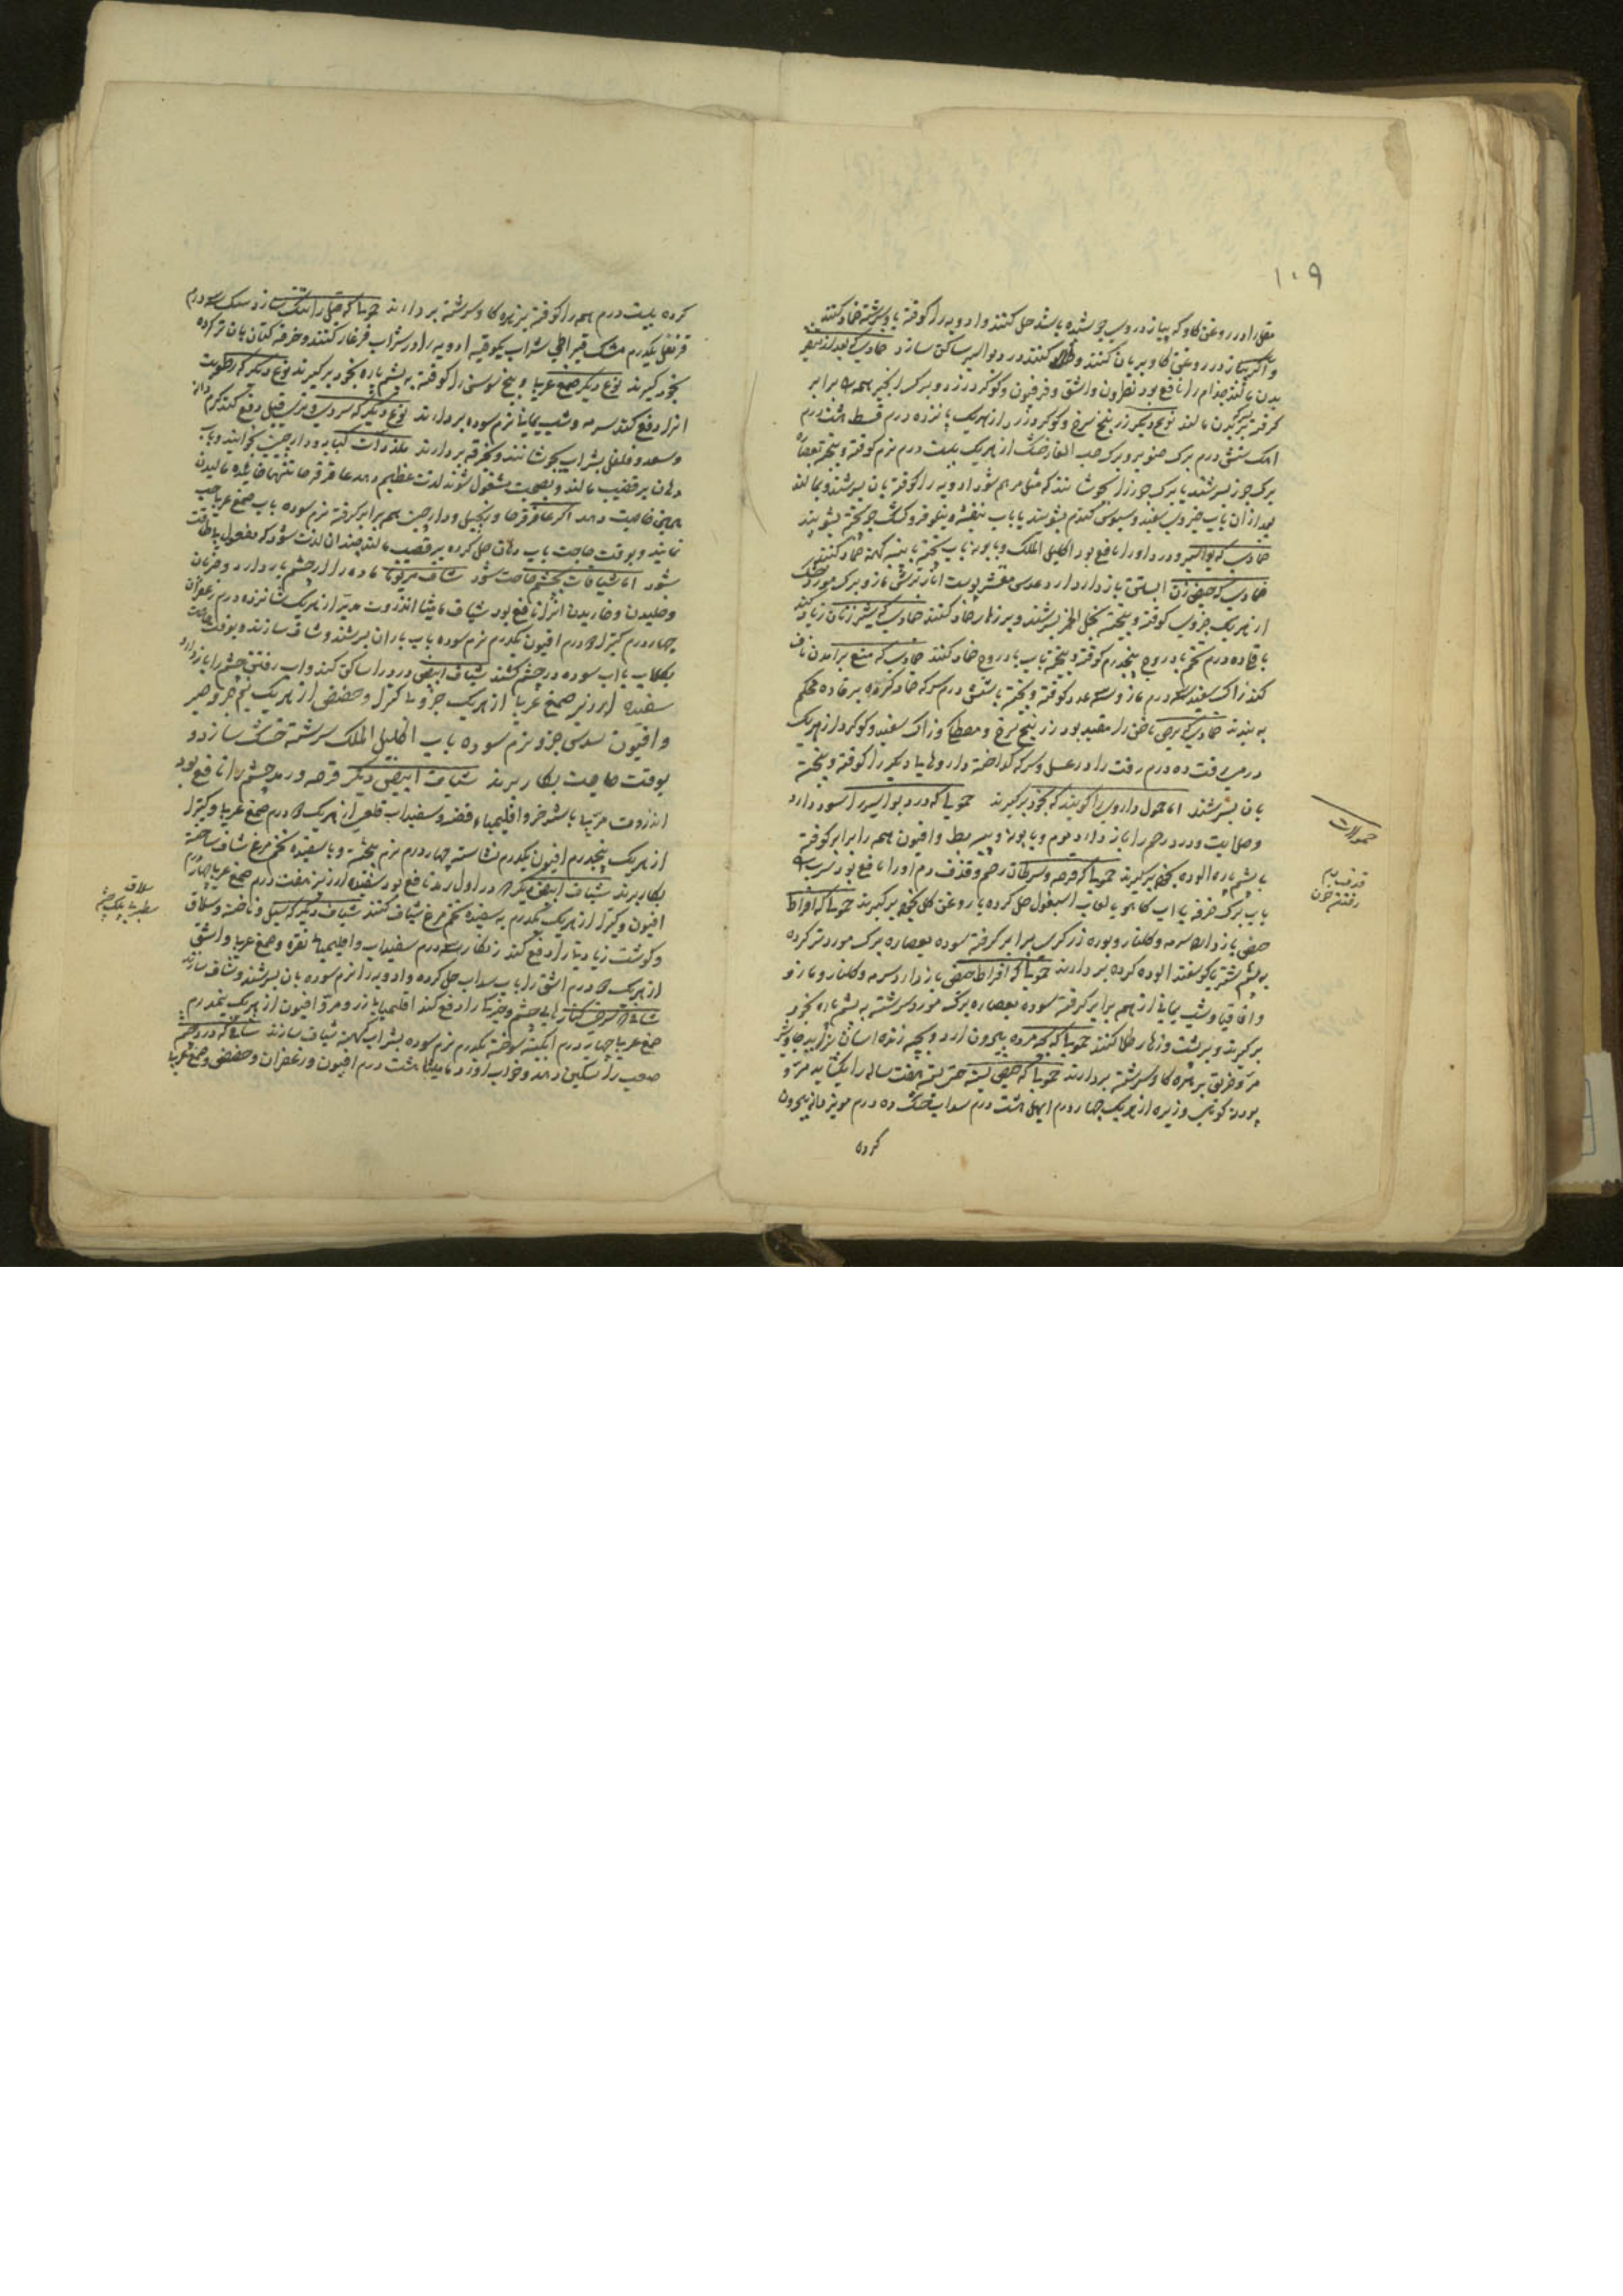 ١٠٩
مقل را در روغن کاو که پیاز در وی جوشیده باشد حل کنند و ادویه را کوفته با و سرشته ضماد کنند
و اکر پیاز در روغن کاو بریان کنند و ضماد کنند درد بواسیر ساکن سازد ضمادی که بعد از تنقیه
بدن مالند جذام را نافع بود نطرون و اشق و فرفیون و کوکرد زرد و برک انجیر همه برابر
کرفته بر بدن مالند نوع دیکر زرنیخ سرخ و کوکرد زرد از هریک پانزده درم قسط هشت درم
اهک شش درم برک صنوبر و برک حب الغار خشک از هریک بیست درم نرم کوفته و بیخته بعصاره
برک جوز بسرشند یا برک جوز را بجوشانند که مثل مرهم شود ادویه را کوفته بان بسرشند و بمالند
بعد از ان باب سفید و سبوس کندم بشویند یا باب بنفشه و نیلوفر و کشک جو پخته بشویند
ضمادی که بواسیر و درد او را نافع بود اکلیل الملک و بابونه باب پخته با پنبه کهنه ضماد کنند
ضمادی که حیض زن ابستن باز دارد عدس مقشر پوست انار ترش مازو برک مورد خشک
از هریک جزوی کوفته و بیخته بخل الخمر بسرشند و بر زهار ضماد کنند ضمادی که شیر زنان زیاده کند
باقلا ده درم تخم بادروج پنجدرم کوفته و بیخته باب بادروج ضماد کنند ضمادی که منع برامدن ناف
کند زاک سفید سه درم مازو سه عدد کوفته و بیخته با شش درم سرکه ضماد کرده بر فاده محکم
به بندند ضمادی که برص ناخن را مفید بود زرنیخ سرخ و مصطکی و زاک سفید و کوکرد از هریک
درمی زفت ده درم زفت را در عسل و سرکه کداخته داروهای دیکر را کوفته و بیخته
بان بسرشند اما حمول داروی را کویند که بخود برکیرند حمولی که درد بواسیر را سود دارد
وصلابت و درد رحم را باز دارد موم و بابونه و پیه بط و افیون همه را برابر کوفته
با پشم پاره الوده بخود برکیرند حمولی که قرحه و سرطان رحم و قذف دم او را نافع بود
باب برک خرفه یا اب کاهو یا لعاب اسبغول حل کرده با روغن کل بخود برکیرند حمولی که افراط
حیض باز دارد سرمه و کلنار و بوره زرکری برابر کرفته سوده بعصاره برک مورد تر کرده
به پشم شتر یا کوسفند الوده کرده بردارند حمولی که افراط حیض باز دارد سرمه و کلنار و مازو
و اقاقیا و شب یمانی از همه برابر کرفته سوده بعصاره برک مورد سرشته به پشم پاره بخود
برکیرند و بر پشت و زهار طلا کنند حمولی که بچه مرده بیرون ارد و بچه زنده اسان بزاید جاوشیر
مر و خربق بزهره کاو سرشته بردارند حمولی که حیض بسته حتی بسته هفت ساله را بکشاید مر و
پودنه کوهی و زیره از هریک چهار درم ابهل هشت درم سداب خشک ده درم مویز دانه بیرون
کرده
حمولات
قذف دم
رفتن خون
کرده بیست درم همه را کوفته بزهره کاو سرشته بردارند حمولی که قبل را تنک سازد سک سه درم
قرنفل یکدرم مشک قیراطی شراب یکوقیه ادویه را در شراب فرغار کنند و خرقه کتان بان تر کرده
بخود کیرند نوع دیکر صمغ عربی و بیخ سوسن را کوفته بر پشم پاره بخود برکیرند نوع دیکر که رطوبت
انرا دفع کند سرمه و شب یمانی نرم سوده بردارند نوع دیکر که سردی و تری قبل دفع کند کرم دانه
و سعد و فلفل بشراب بجوشانند و بخرقه بردارند ملذذات کبابه و دارچینی بخوایند و باب
دهان بر قضیب مالند و بصحبت مشغول شوند لذت عظیم دهد عاقرقرحا تنها خائیده مالیدن
همین خاصیت دهد اکر عاقرقرحا و زنجبیل و دارچینی همه برابر کرفته نرم سوده باب صمغ عربی حب
نمایند و بوقت حاجت باب دهان حل کرده بر قضیب مالند چندان لذت شود که مفعول بیطاقت
شود اما شیافات بچشم خاصه شود شیاف مرزنکوش ماده را از چشم باز دارد و ضربان
و خلیدن و خاریدن انرا نافع بود شیاف مامیثا انزروت مدبر از هریک شانزده درم زعفران
چهار درم کتیرا ۲ درم افیون یکدرم نرم سوده باب باران بسرشند و شیاف سازند و بوقت حاجت
بکلاب یا اب سوده در چشم کشند شیاف ابیض درد را ساکن کند و اب رفتن چشم را باز دارد
سفیده ارزیز صمغ عربی از هریک جزوی کتیرا و حضض از هریک نیم جزو صبر
و افیون سدس جزو نرم سوده باب اکلیل الملک سرشته خشک سازد و
بوقت حاجت بکار برند شیاف ابیض دیکر قرحه و رمد چشم را نافع بود
انزروت مربی باشد خر و اقلیمیاء فضه و سفیداب قلعی از هریک ۲ درم صمغ عربی و کتیرا
از هریک پنجدرم افیون یکدرم نشاسته چهار درم نرم بیخته و با سفیده تخم مرغ شیاف ساخته
بکار برند شیاف ابیض دیکر که در اول رمد نافع بود سفیده ارزیز هفت درم صمغ عربی چهار درم
افیون و کتیرا از هریک یکدرم به سفیده تخم مرغ شیاف کنند شیاف دیکر که سبل و ناخنه و سلاق
و کوشت زیادتی را دفع کند زنکار سه درم سفیداب و اقلیمیای نقره و صمغ عربی و اشق
از هریک ۲ درم اشق را باب سداب حل کرده و ادویه را نرم سوده بان بسرشند و شیاف سازند
چشم و جرب را دفع کند اقلیمیا باز زر و مر و افیون از هریک نیمدرم
صمغ عربی چهار درم سوخته یکدرم نرم سوده بشراب کهنه شیاف سازند شیافی که درد چشم
صعب را تسکین دهد و خواب اورد مامیثا هشت درم افیون و زعفران و حضض و صمغ عربی
سلاق
سطبری پلک چشم